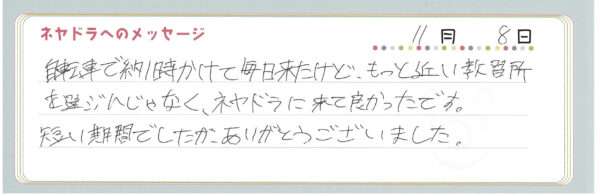 ネヤドラへのメッセージ
11月 8日
自転車で約1時かけて毎日来たけど、もっと近い教習所
を選ぶんじゃなく、ネヤドラに来て良かったです。
短い期間でしたが、ありがとうございました。